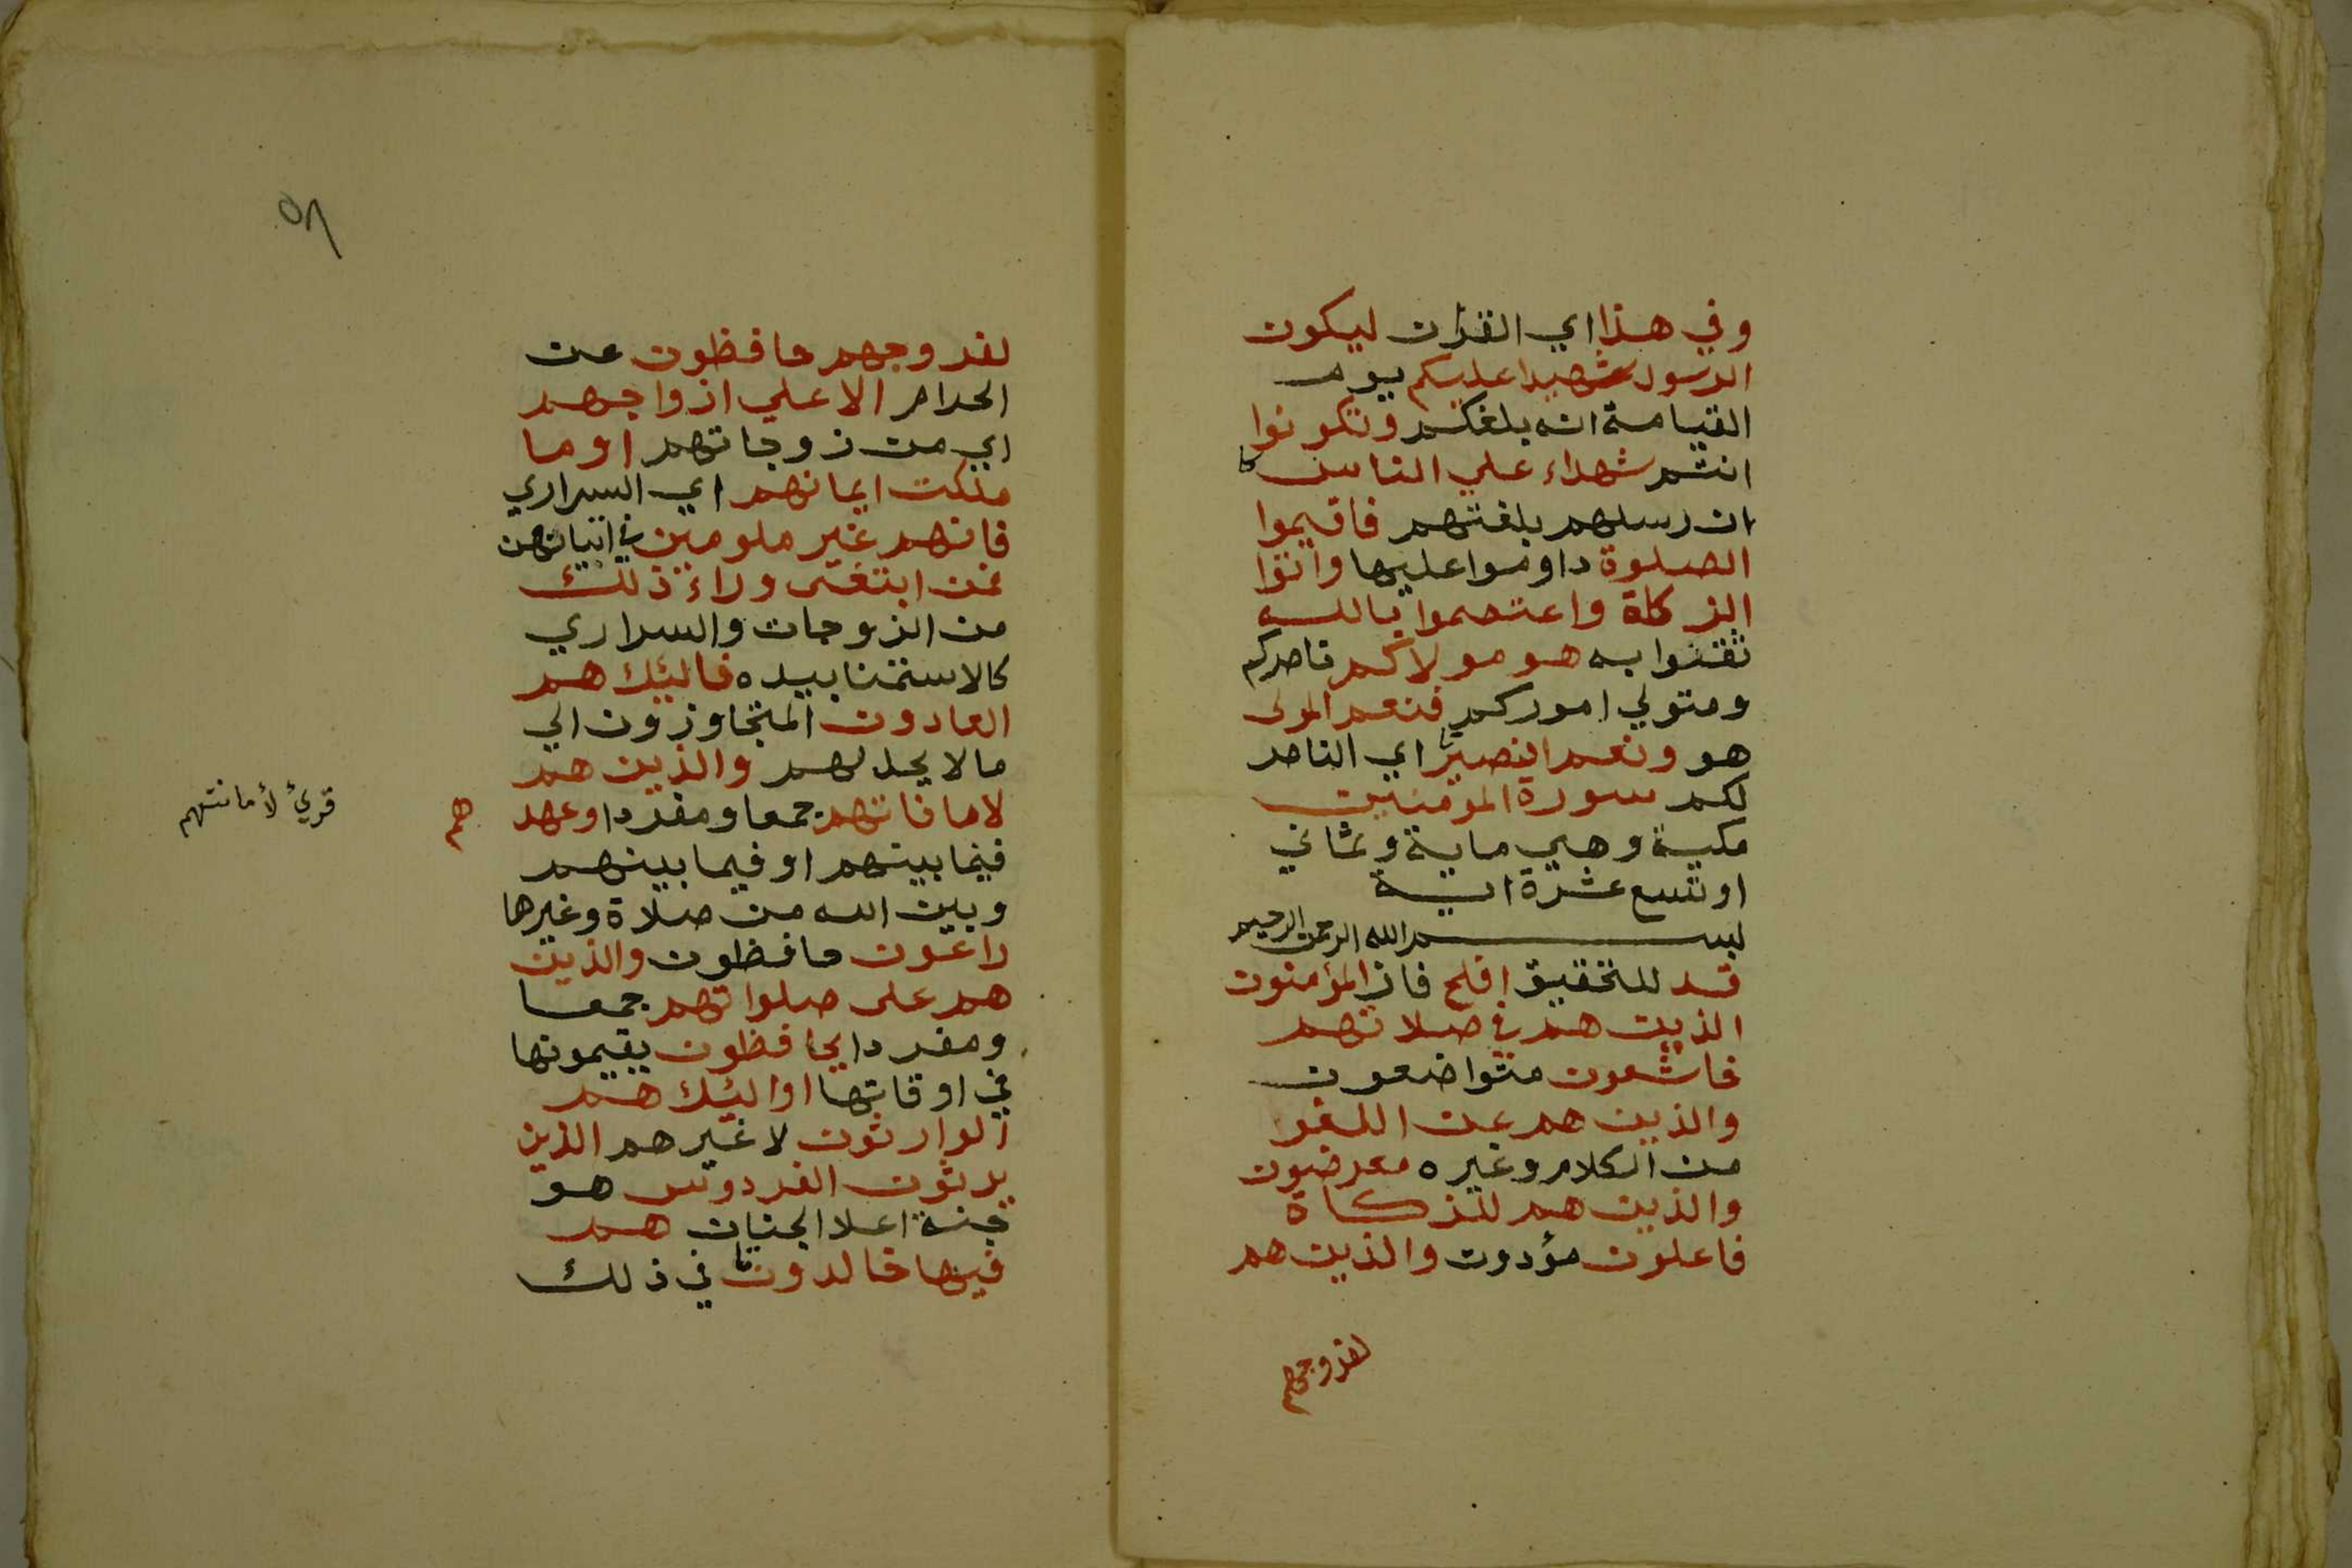 وفي هذا اي القرآن ليكون
الرسول شهيدا عليكم يوم
القيامة انه بلغكم وتكونوا
انتم شهداء علي الناس
ان رسلهم بلغتهم فاقيموا
الصلوة داوموا عليها واتوا
الزكاة واعتصموا بالله
ثقتوا به هو مولاكم ناصركم
ومتولي اموركم فنعم المولى
هو ونعم النصير اي الناصر
لكم سورة المؤمنين
مكية وهي ماية وثماني
او تسع عشرة اية
بسم الله الرحمن الرحيم
قد للتحقيق افلح فاز المؤمنون
الذين هم في صلاتهم
خاشعون متواضعون
والذين هم عن اللغو
من الكلام وغيره معرضون
والذين هم للزكاة
فاعلون مؤدون والذين هم
لفروجهم
٥٨
لفروجهم حافظون عن
الحرام الا علي ازواجهم
اي من زوجاتهم او ما
ملكت ايمانهم اي السراري
فانهم غير ملومين في اتيانهن
فمن ابتغى وراء ذلك
من الزوجات والسراري
كالاستمنا بيده فاليئك هم
العادون المتجاوزون الي
ما لا يحل لهم والذين هم
لاماناتهم جمعا ومفردا وعهد
هم
قرئ لأمانتهم
فيما بينهم او فيما بينهم
وبين الله من صلاة وغيرها
راعون حافظون والذين
هم على صلواتهم جمعا
ومفردا يحافظون يقيمونها
في اوقاتها اوالئك هم
الوارثون لا غيرهم الذين
يرثون الفردوس هو
جنة اعلا الجنان هم
فيها خالدون في ذلك